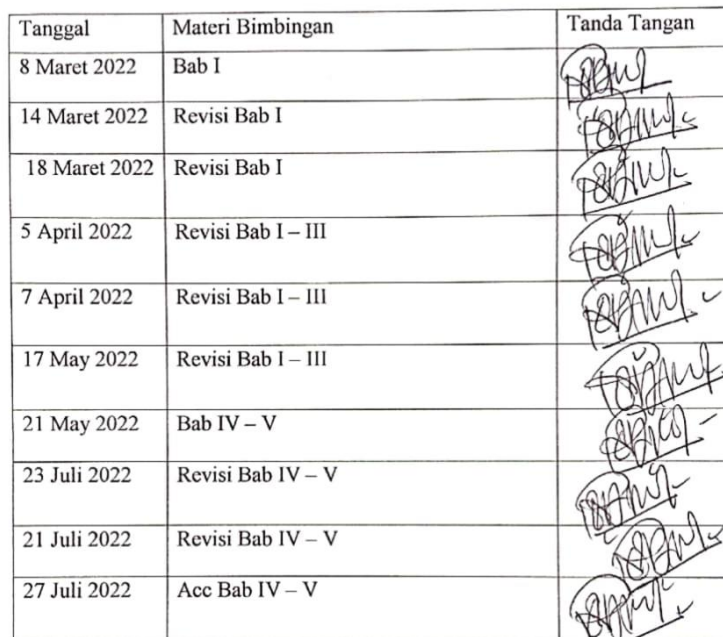 Tanggal Materi Bimbingan Tanda Tangan
8 Maret 2022 Bab I
14 Maret 2022 Revisi Bab I
18 Maret 2022 Revisi Bab I
5 April 2022 Revisi Bab I – III
7 April 2022 Revisi Bab I – III
17 May 2022 Revisi Bab I – III
21 May 2022 Bab IV – V
23 Juli 2022 Revisi Bab IV – V
21 Juli 2022 Revisi Bab IV – V
27 Juli 2022 Acc Bab IV – V